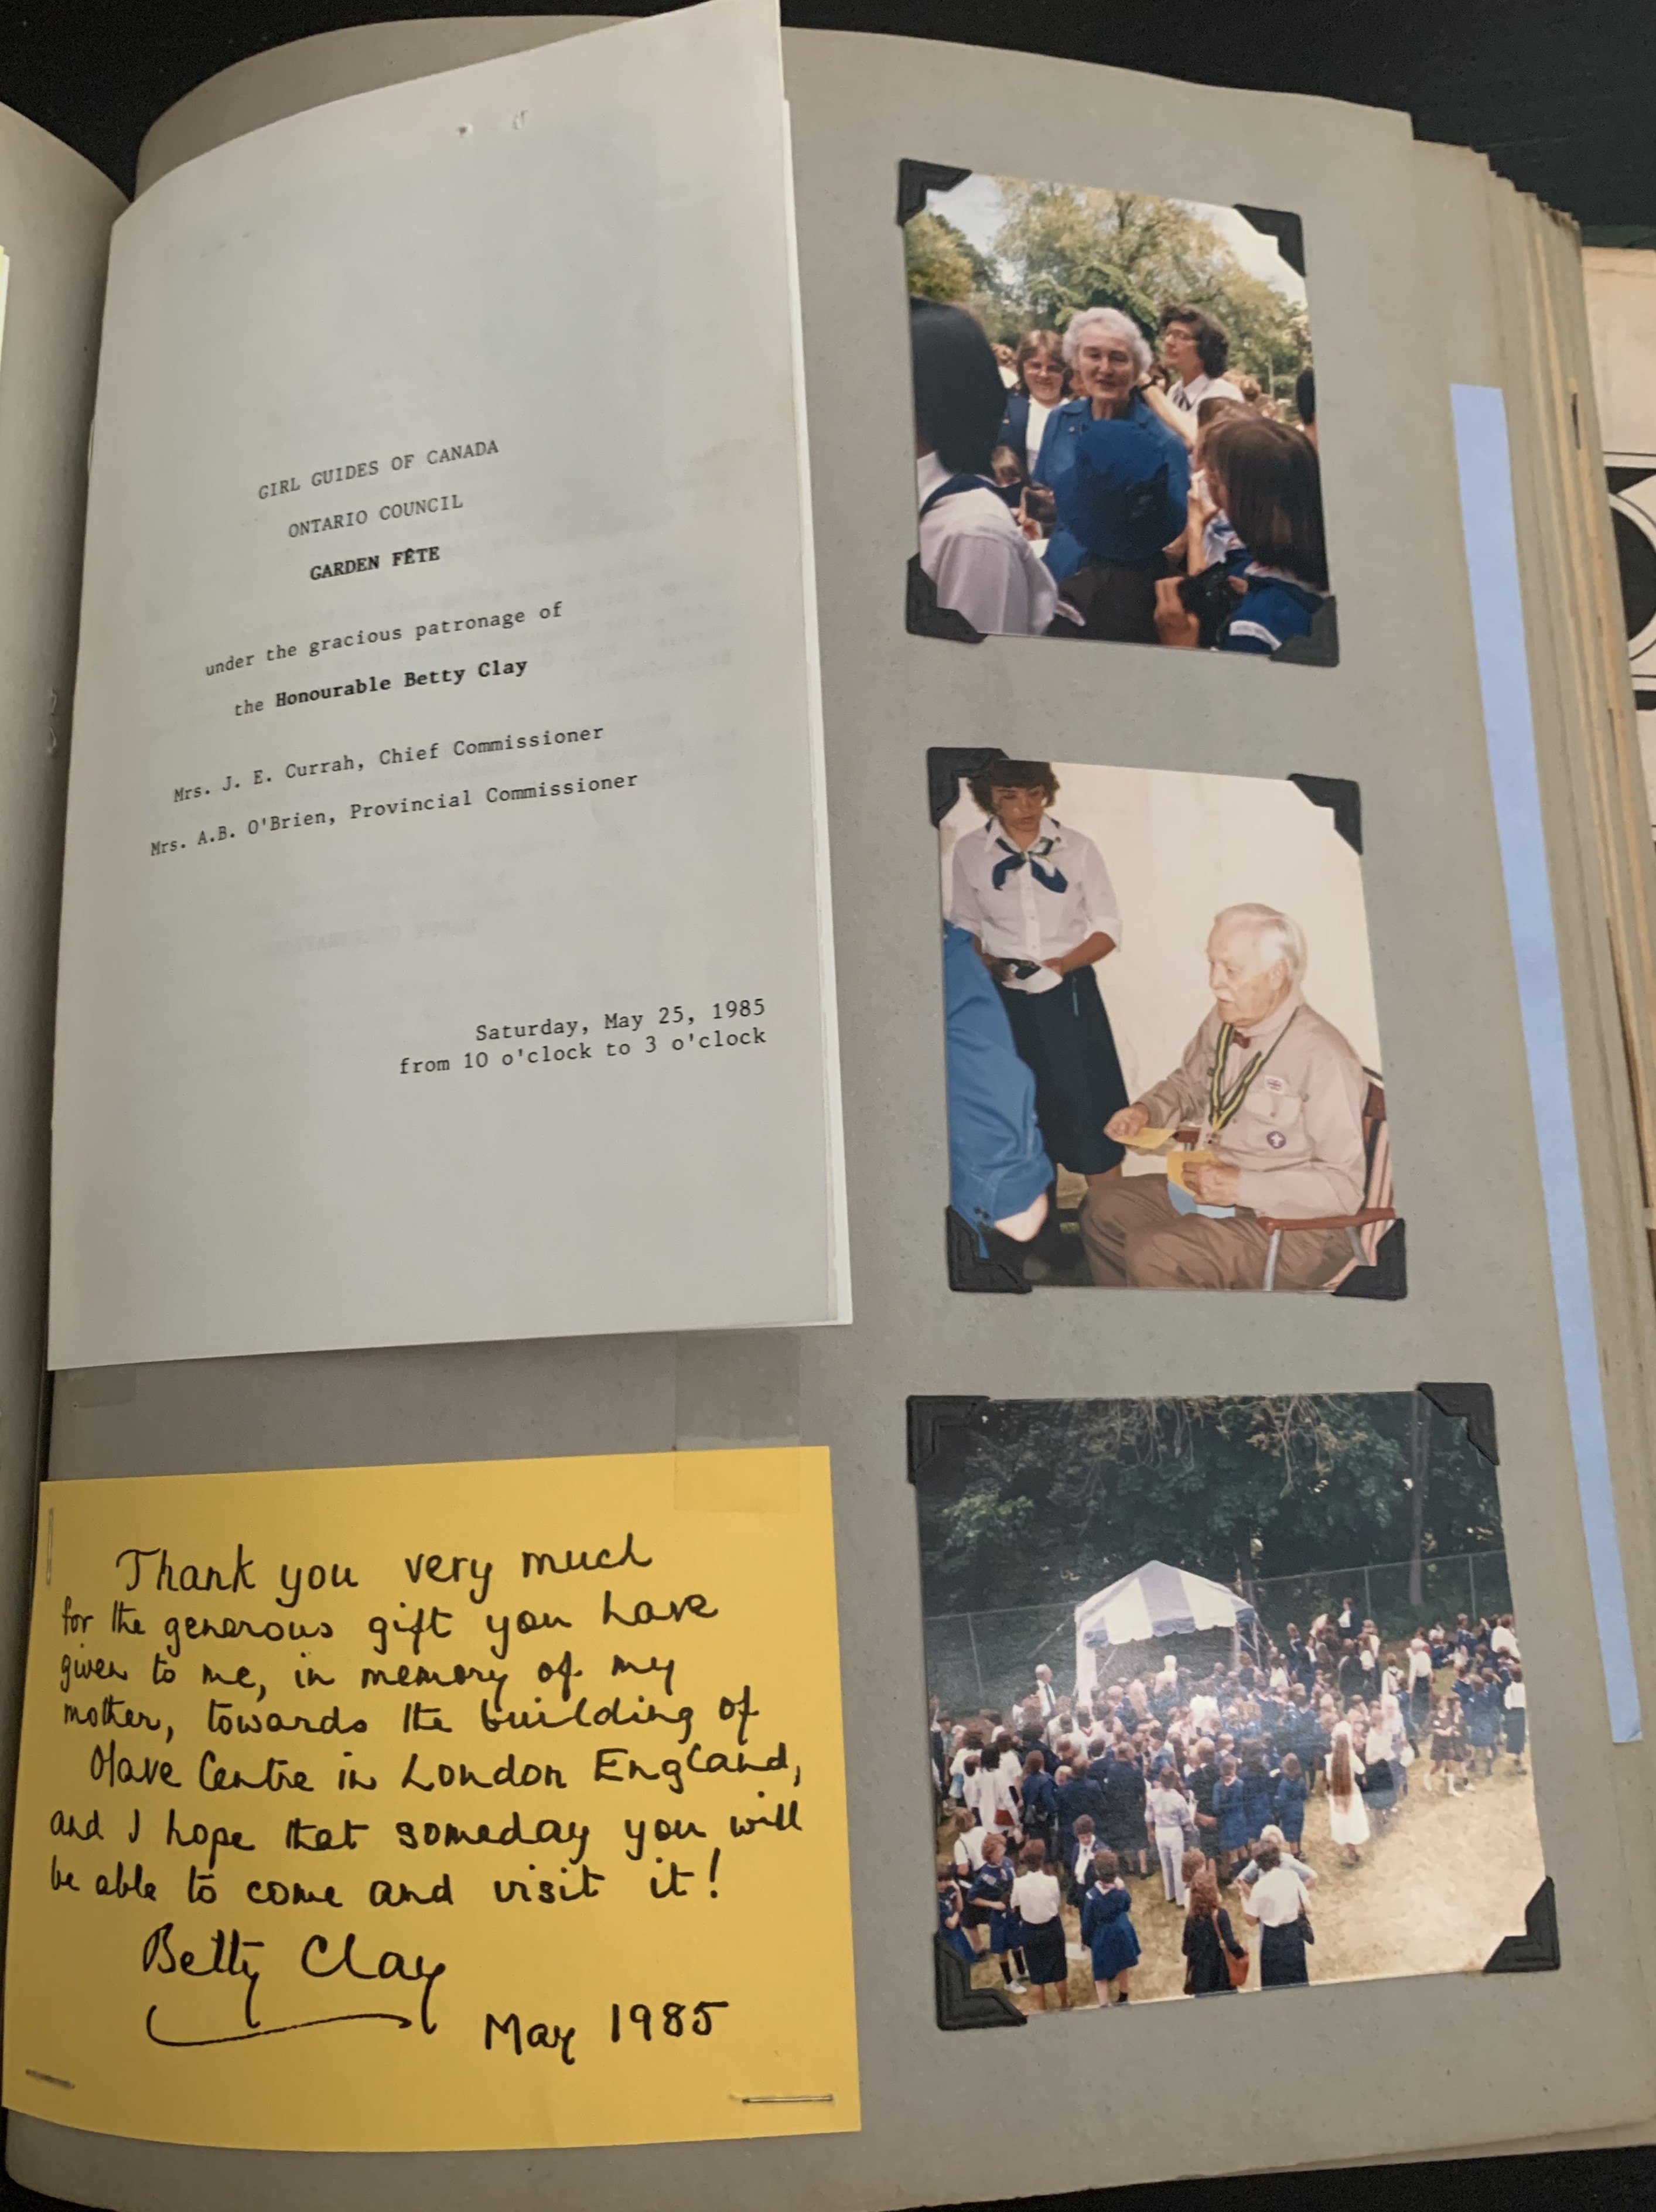 GIRL GUIDES OF CANADA
ONTARIO COUNCIL
GARDEN FÊTE
under the gracious patronage of
the Honourable Betty Clay
Mrs. J. E. Currah, Chief Commissioner
Mrs. A.B. O'Brien, Provincial Commissioner
Saturday, May 25, 1985
from 10 o'clock to 3 o'clock
Thank you very much
for the generous gift you have
given to me, in memory of my
mother, towards the building of
Olave Centre in London England,
and I hope that someday you will
be able to come and visit it!
Betty Clay
May 1985